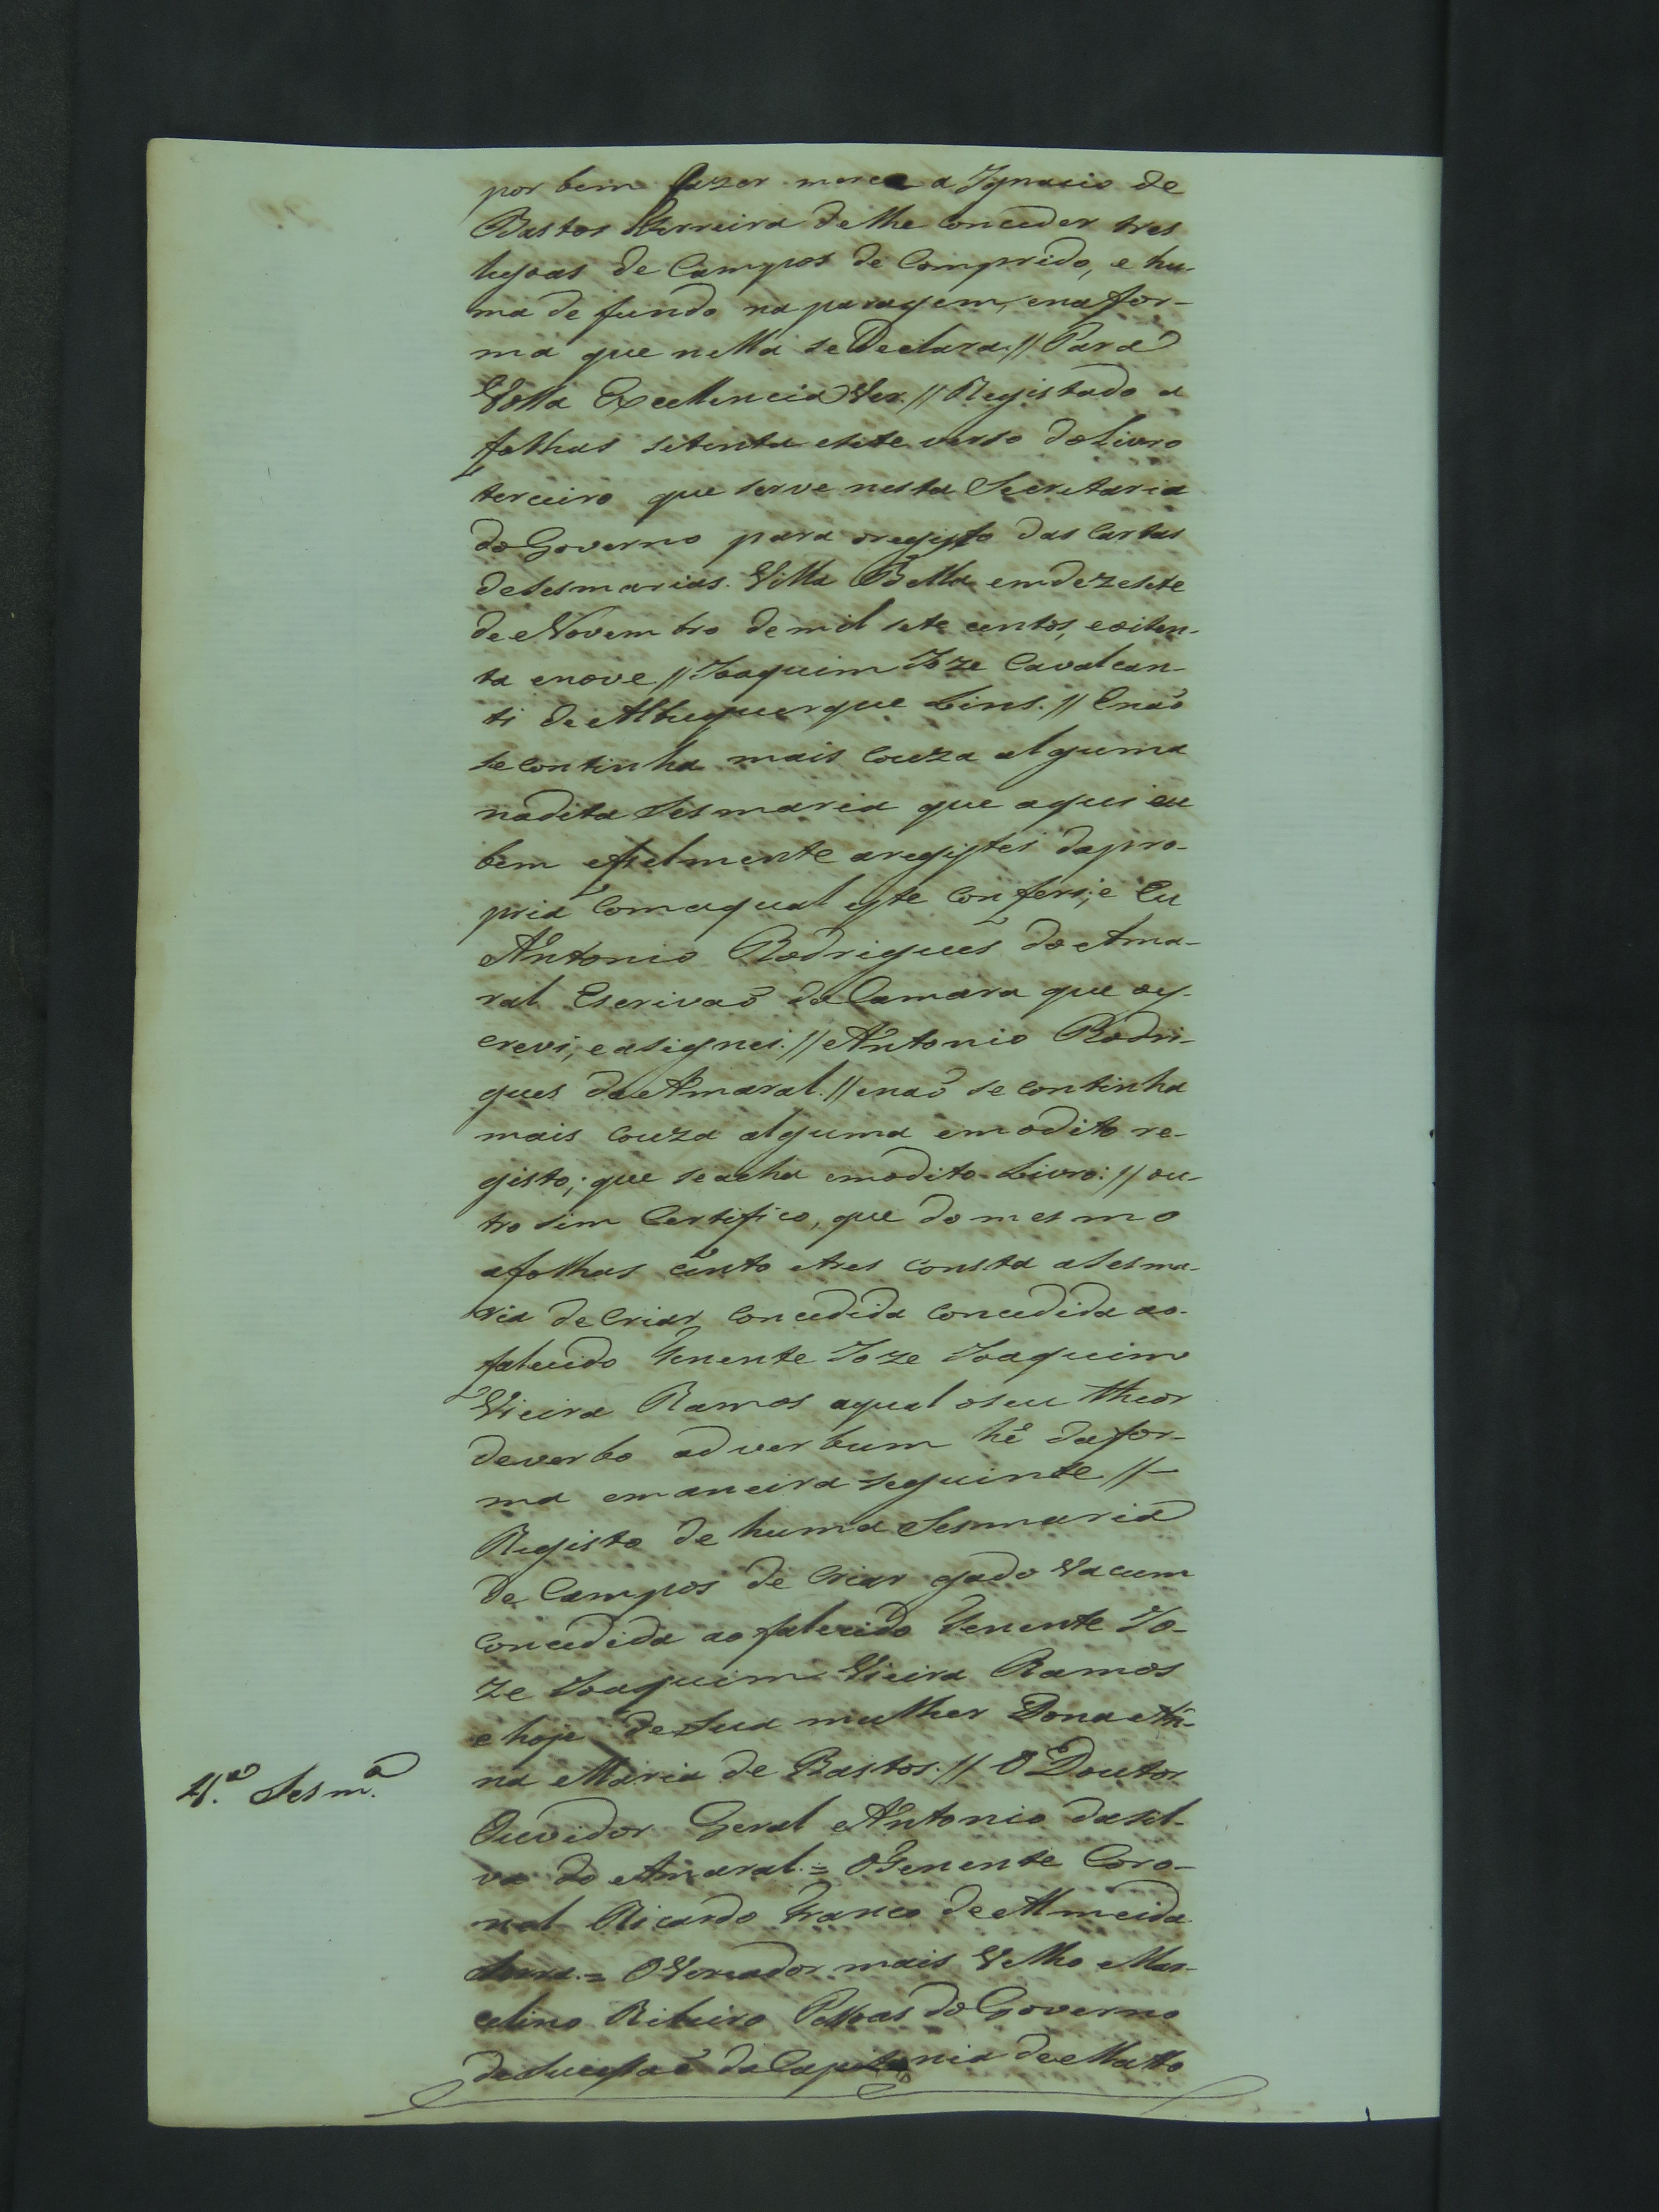 por bem fazer merce a Ignacio de
Bastos Ferreira de lhe conceder tres
legoas de Campos de Comprido, e hu-
ma de fundo na paragem, ena for-
ma que nella se Declara. // Para
Vossa Excellencia Ver. // Registado a
folhas setenta esete verso do Livro
terceiro que serve nesta Secretaria
do Governo para oregisto das Cartas
desesmarias. Villa Bella em dezesete
de Novembro de mil sete centos, eoiten-
ta enove // Joaquim Joze Cavalcan-
ti de Albuquerque Lins. // Enaõ
se continha mais Couza alguma
nadita Sesmaria que aqui eu
bem efielmente aregistei dapro-
pria Comaqual este Conferi, e Eu
Antonio Rodrigues do Ama-
ral Escrivaõ da Camara que oes-
crevi, easignei. // Antonio Rodri-
gues do Amaral. // enaõ se continha
mais Couza alguma em odito re-
gisto; que seacha emodito Livro: // ou-
tro sim Certifico, que do mesmo
afolhas cento etres consta aSesma-
ria de Criar concedida concedida ao
falecido Tenente Joze Joaquim
Vieira Ramos aqual oseu theor
deverbo ad verbum hé dafor-
ma emaneira seguinte //-
Registo de huma Sesmaria
de Campos de Criar gado Vacum
concedida ao falecido Tenente Jo-
ze Joaquim Vieira Ramos
e hoje de Sua mulher Dona An-
na Maria de Bastos. // O Doutor
4.ª Sesm.ª
Ouvidor Geral Antonio da Sil-
va do Amaral. = O Tenente Coro-
nel Ricardo Franco de Almeida
Serra. = O Vereador mais Velho Mar-
celino Ribeiro Pessoas do Governo
de Sucessaõ da Capitania de Matto